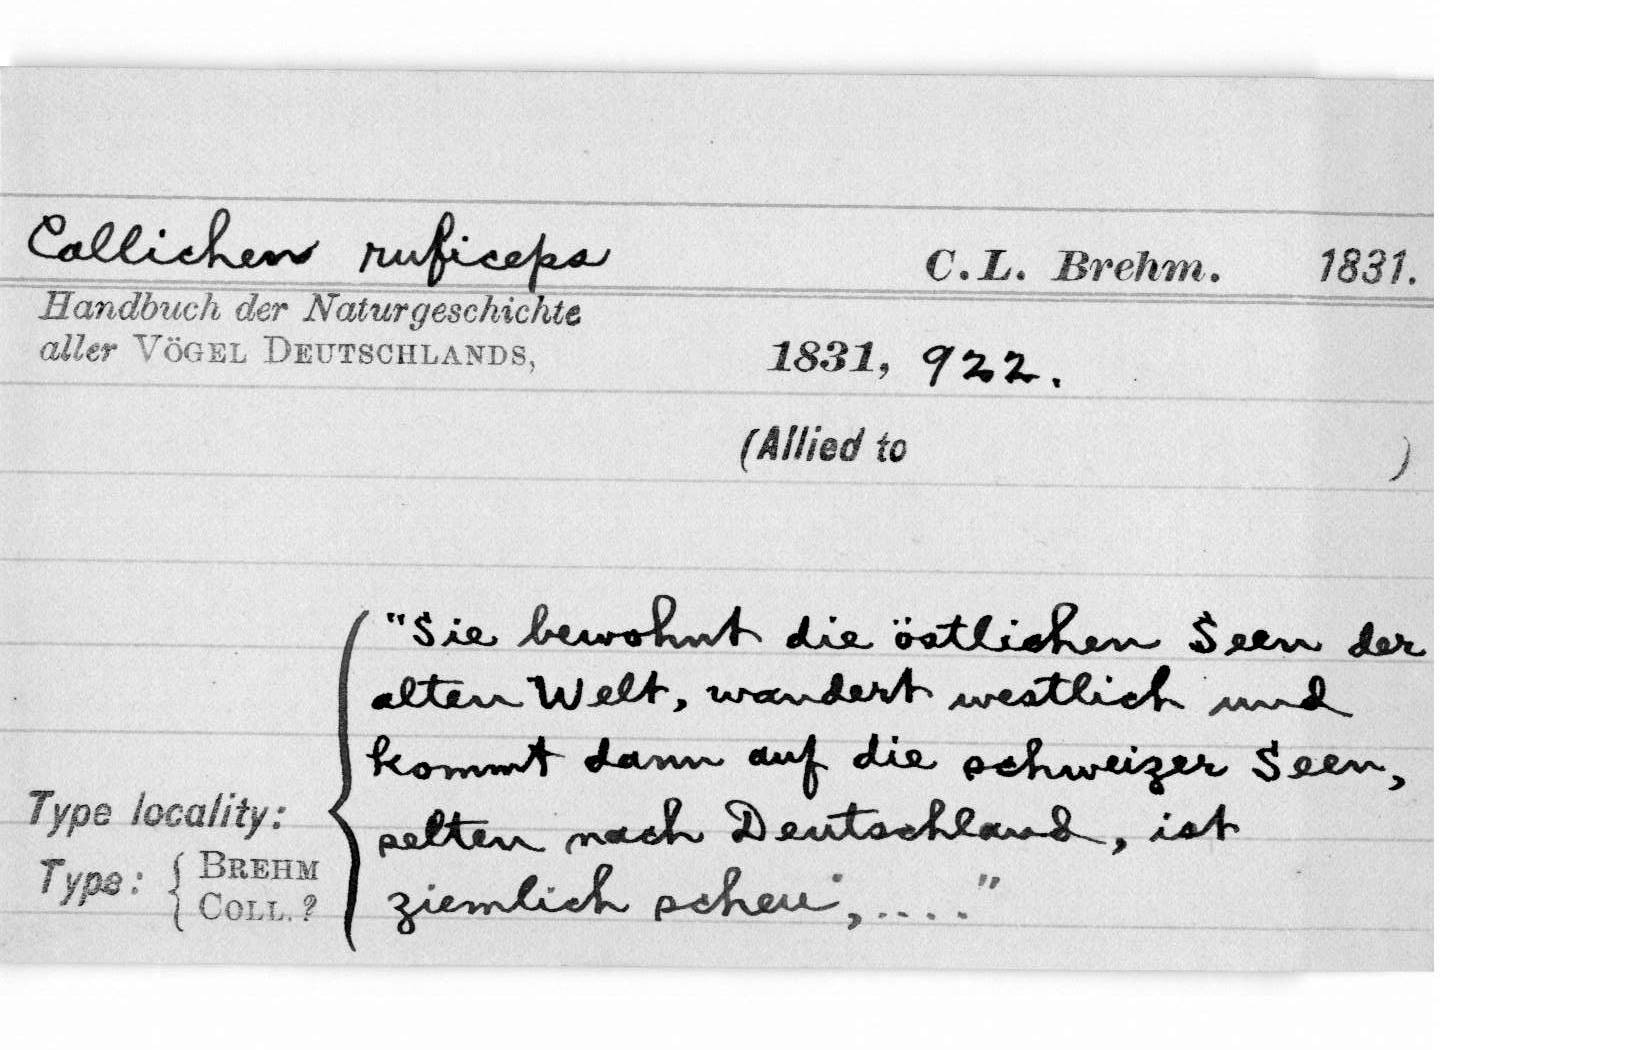 Callichen ruficeps C.L. Brehm. 1831.
Handbuch der Naturgeschichte
aller VÖGEL DEUTSCHLANDS, 1831, 922.
(Allied to )
"Sie bewohnt die östlichen Seen der
alten Welt, wandert westlich und
kommt dann auf die schweizer Seen,
selten nach Deutschland, ist
ziemlich scheu;, ...."
Type locality:
Type: { BREHM
COLL. ?